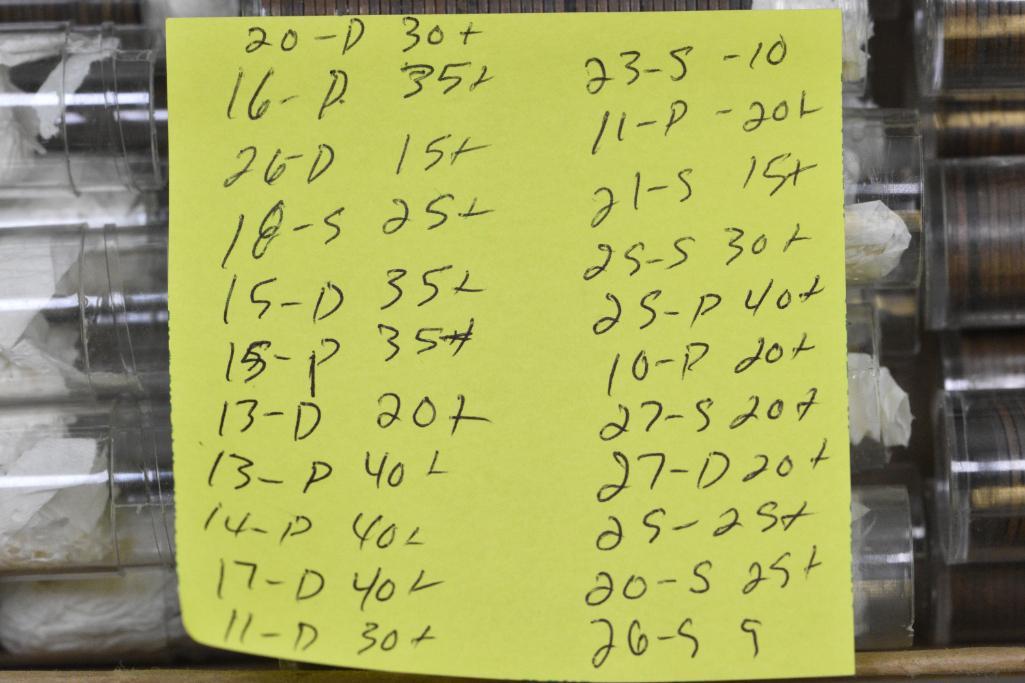 20-D 30+
16-P 35+
26-D 15+
18-S 25+
15-D 35+
15-P 35+
13-D 20+
13-P 40+
14-P 40+
17-D 40+
11-D 30+
23-S -10
11-P -20+
21-S 15+
25-S 30+
25-P 40+
10-P 20+
27-S 20+
27-D 20+
25- 25+
20-S 25+
26-S 9